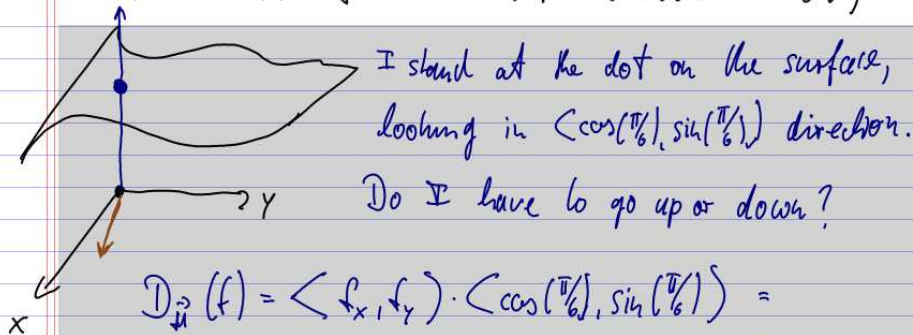 I stand at the dot on the surface,
looking in <cos(π/6), sin(π/6)> direction.
y
Do I have to go up or down?
D_u⃗ (f) = <f_x, f_y> · <cos(π/6), sin(π/6)> =
x